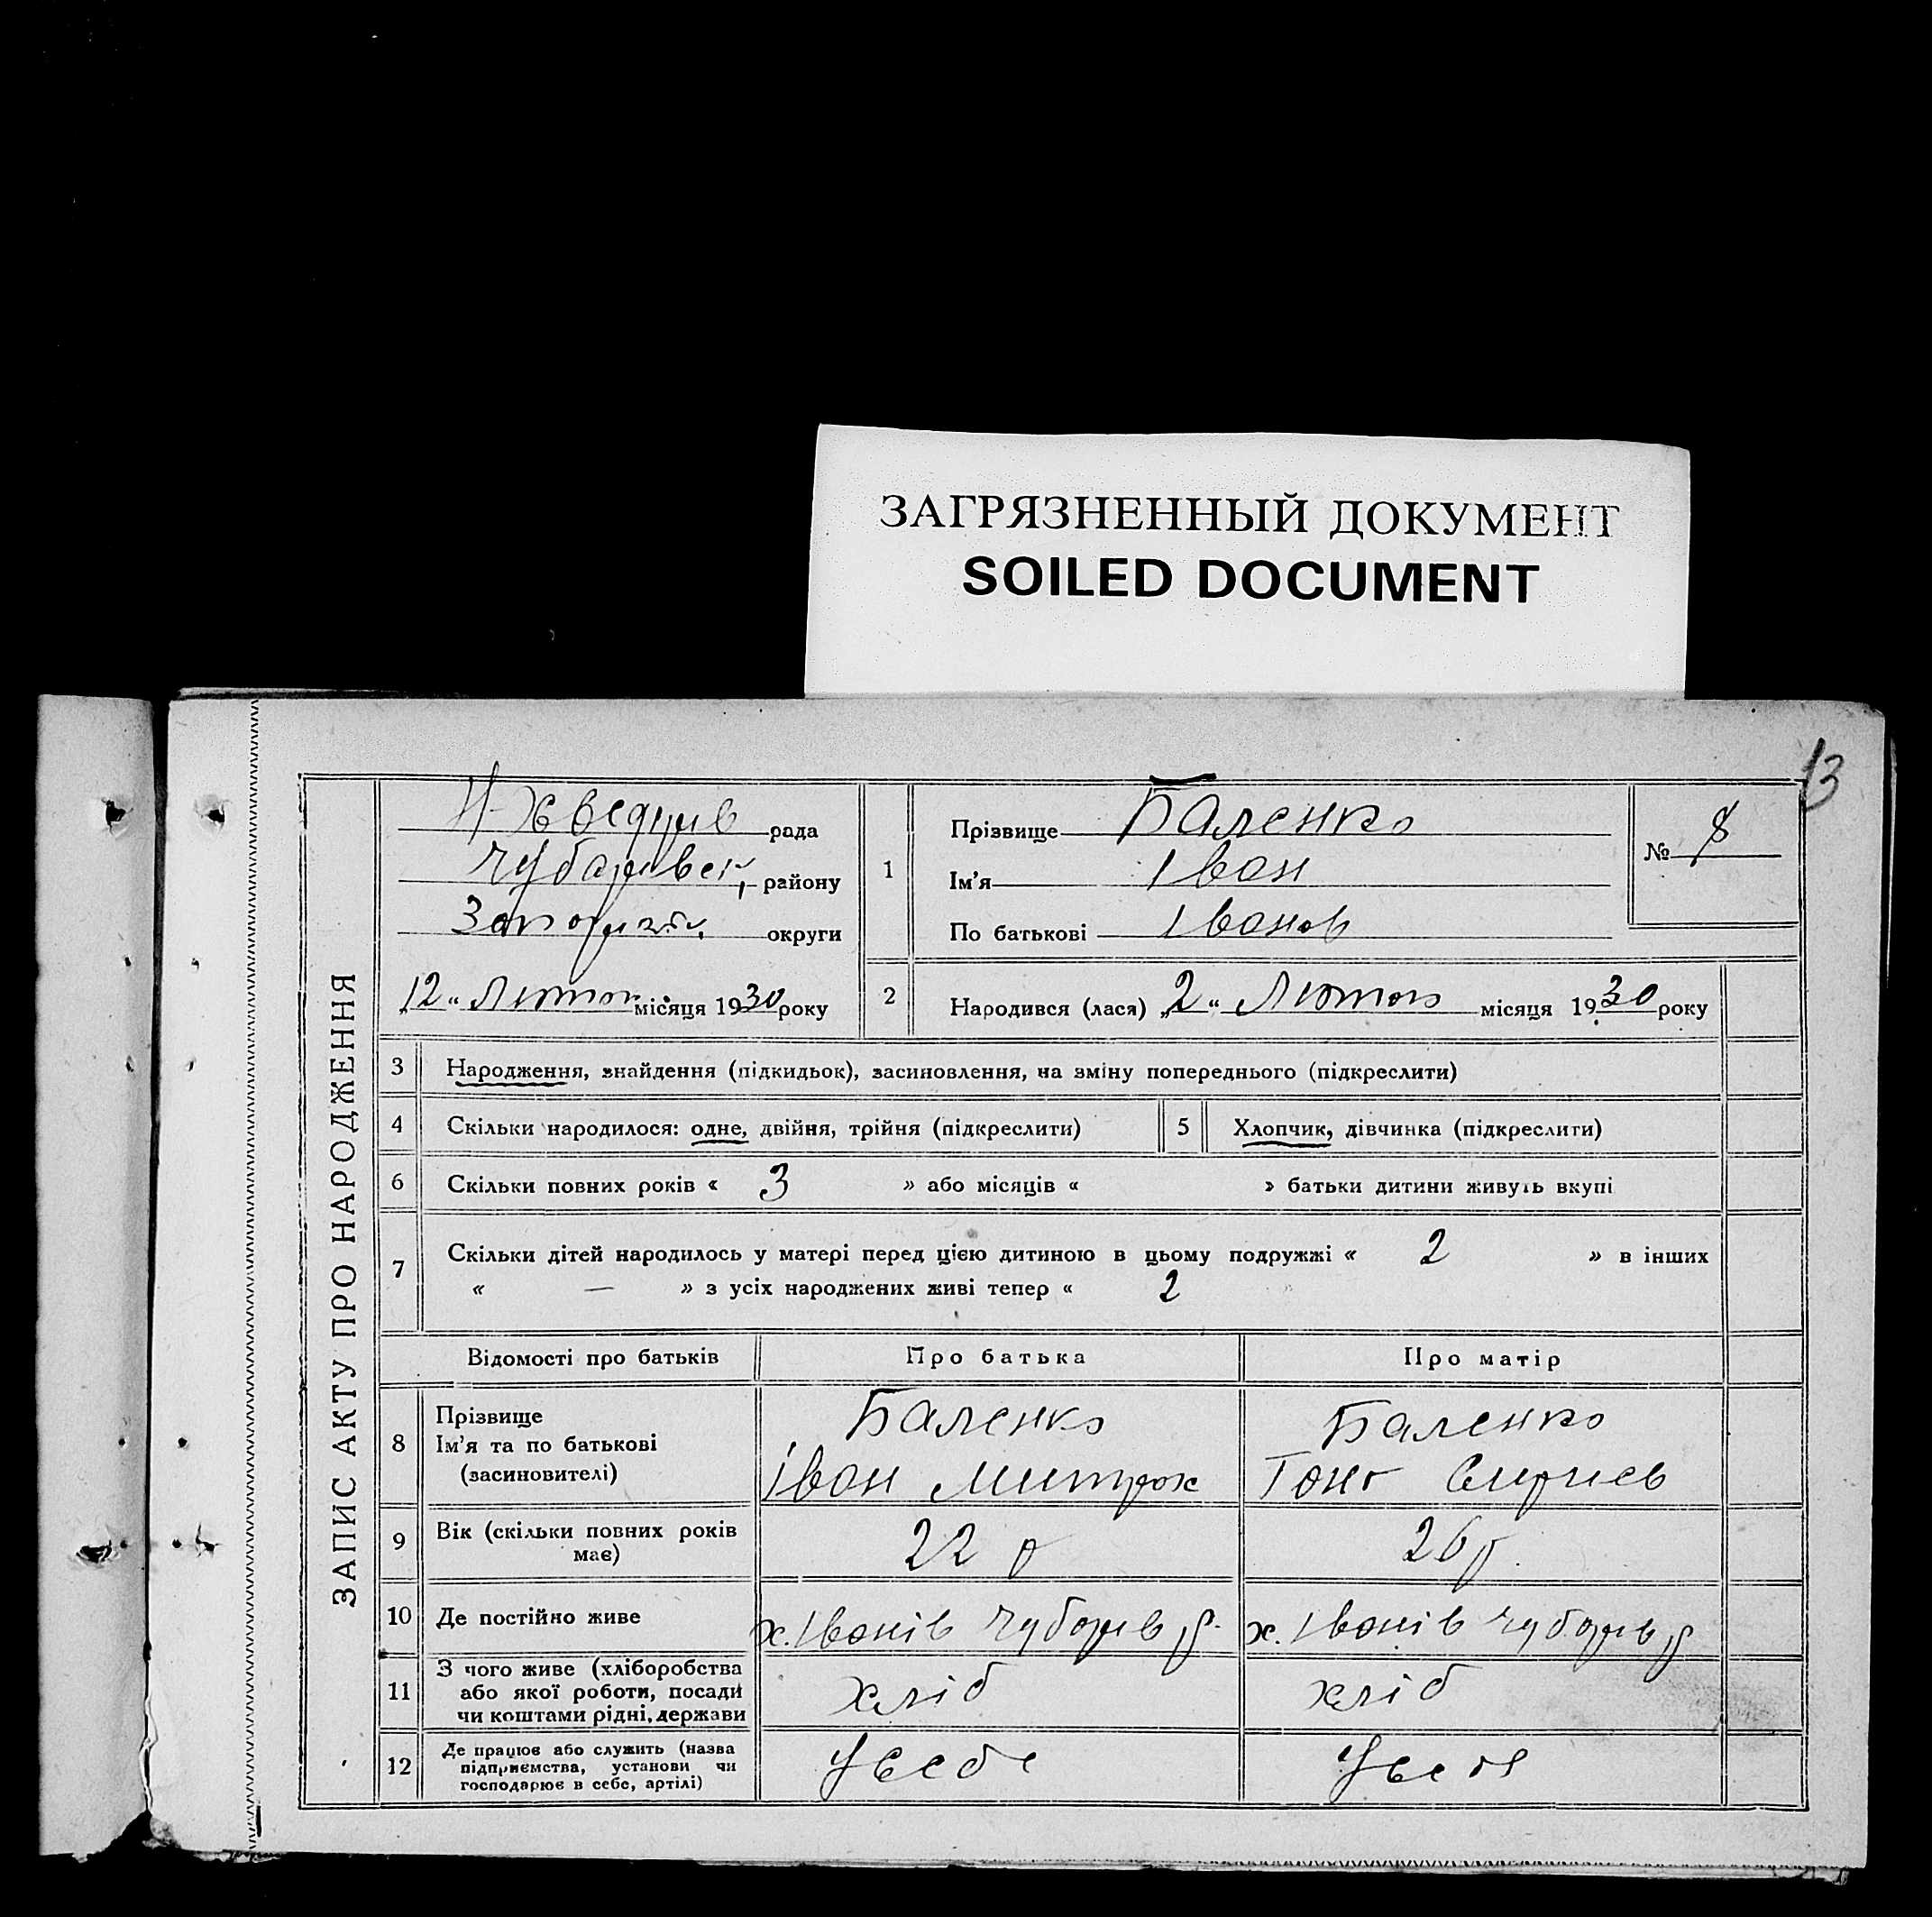 ЗАГРЯЗНЕННЫЙ ДОКУМЕНТ
SOILED DOCUMENT
13
ЗАПИС АКТУ ПРО НАРОДЖЕННЯ
рада
Чубарівськ, району
округи
„12“ Лютого місяця 1930 року
1
Прізвище Баленко
Ім'я Іван
По батькові Іванов
№ 8
2
Народився (лася) „2“ Лютого місяця 1930 року
3 Народження, знайдення (підкидьок), засиновлення, на зміну попереднього (підкреслити)
4 Скільки народилося: одне, двійня, трійня (підкреслити)
5 Хлопчик, дівчинка (підкреслити)
6 Скільки повних років « 3 » або місяців « » батьки дитини живуть вкупі
7 Скільки дітей народилось у матері перед цією дитиною в цьому подружжі « 2 » в інших
« — » з усіх народжених живі тепер « 2
Відомості про батьків Про батька Про матір
8 Прізвище
Ім'я та по батькові
(засиновителі)
Баленко
Іван Митроx
Баленко
9 Вік (скільки повних років
має)
22 р
26 р.
10 Де постійно живе
х. Іванів Чубарів р.
х. Іванів Чубарів р
11 З чого живе (хліборобства
або якої роботи, посади
чи коштами рідні, держави
хліб
хліб
12 Де працює або служить (назва
підприємства, установи чи
господарює в себе, артілі)
У себе
У себе